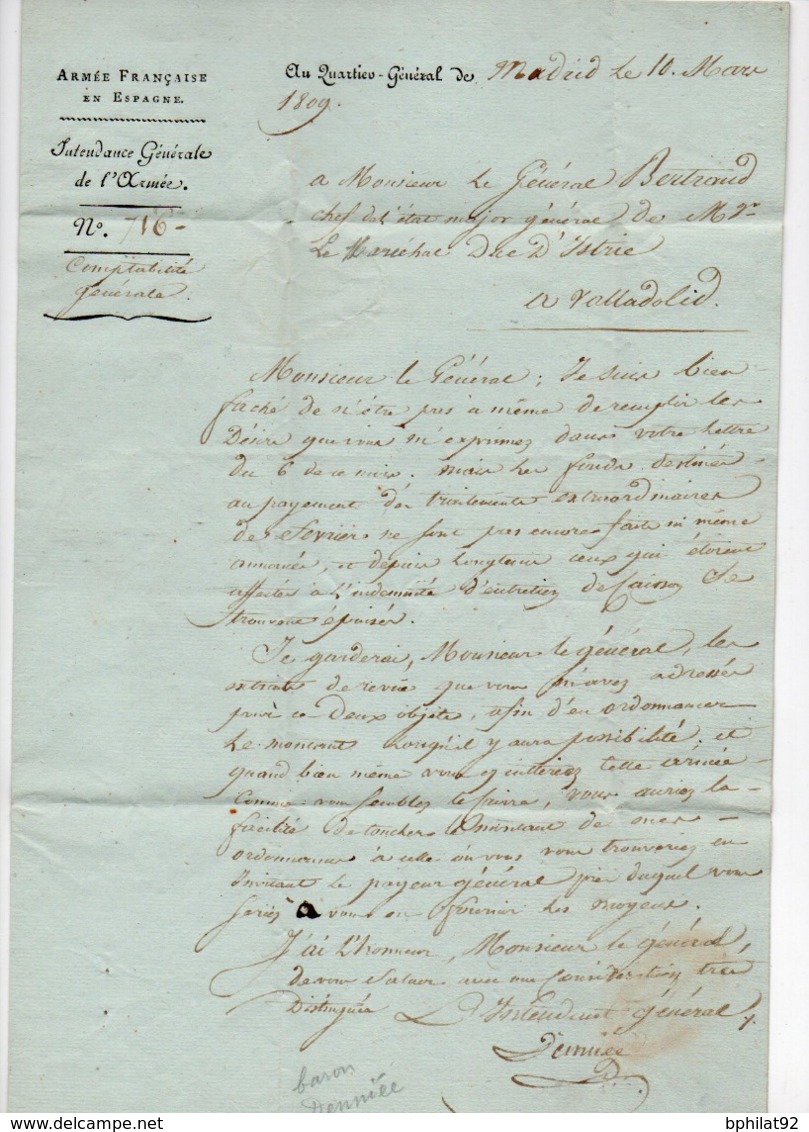 ARMÉE FRANÇAISE
EN ESPAGNE.
Intendance Générale
de l'Armée.
N°. 716 -
Comptabilité
générale.
Au Quartier-Général de Madrid le 10. Mars
1809.
a Monsieur le Général Bertrand
chef de l'état major général de Mgr
Le Maréchal Duc D'Istrie
a Valladolid.
Monsieur le Général; Je suis bien
faché de n'être pas a même de remplir les
Désirs que vous m'exprimez dans votre lettre
du 6 de ce mois. mais les fonds destinés
au payement des traitements extraordinaires
de fevrier ne sont pas encore faits ni même
annoncés, et depuis longtems ceux qui étoient
affectés à l'indemnité d'entretien de Caisson se
trouvent épuisés.
Je garderai, Monsieur le général, les
extraits de revue que vous m'avez adressés
pour ces Deux objets, afin d'en ordonnancer
le montant lorsqu'il y aura possibilité. et
quand bien même vous quitteriez cette armée
comme vous semblez le faire, vous auriez la
facilité de toucher le montant de mes
ordonnances à celle où vous vous trouveriez en
Invitant le payeur général près duquel vous
seriez à vous en fournir les moyens.
J'ai l'honneur, Monsieur le général,
de vous saluer avec une Considération très
Distinguée L'Intendant général
Denniée
baron
Denniée
bphilat92